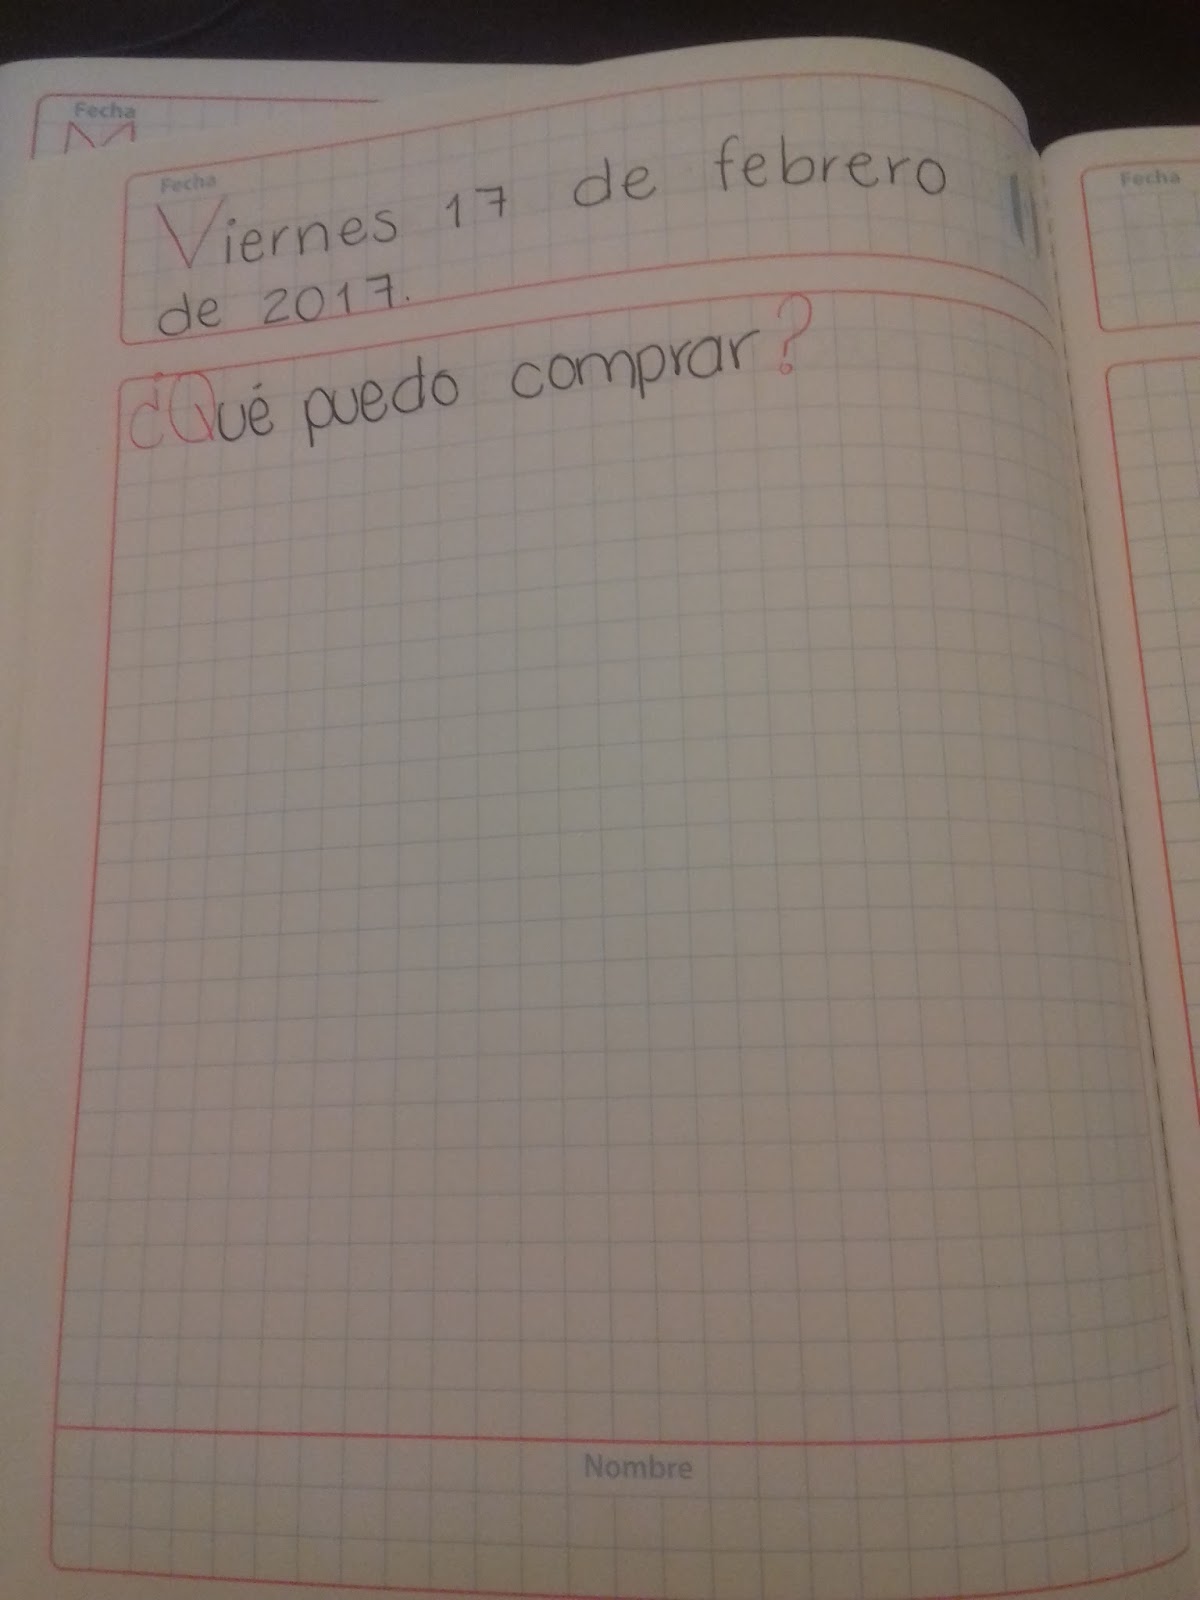 Fecha
M
Fecha
Viernes 17 de febrero
de 2017.
¿Qué puedo comprar?
Nombre
Fecha